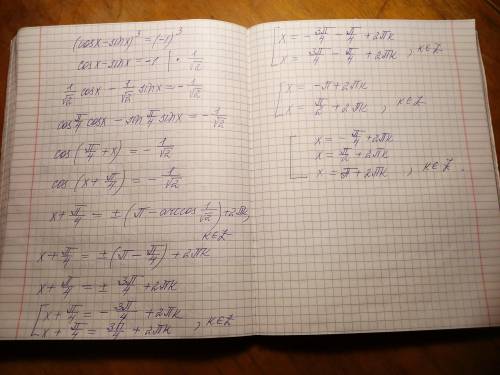 (cosx-sinx)³=(-1)³
cosx-sinx=-1 | · 1/√2
1/√2 cosx - 1/√2 sinx = -1/√2
cos π/4 cosx - sin π/4 sinx = -1/√2
cos(π/4+x) = -1/√2
cos(x+π/4) = -1/√2
x+π/4 = ±(π-arccos 1/√2)+2πk,
k∈Z
x+π/4 = ±(π-π/4)+2πk
x+π/4 = ± 3π/4 +2πk
[x+π/4 = -3π/4 +2πk
x+π/4 = 3π/4 +2πk , k∈Z
[x = -3π/4 - π/4 +2πk
x = 3π/4 - π/4 +2πk , k∈Z
[x = -π+2πk
x = π/2 +2πk , k∈Z
[x = -π/4 +2πk
x = π/2 +2πk
x = π+2πk , k∈Z.